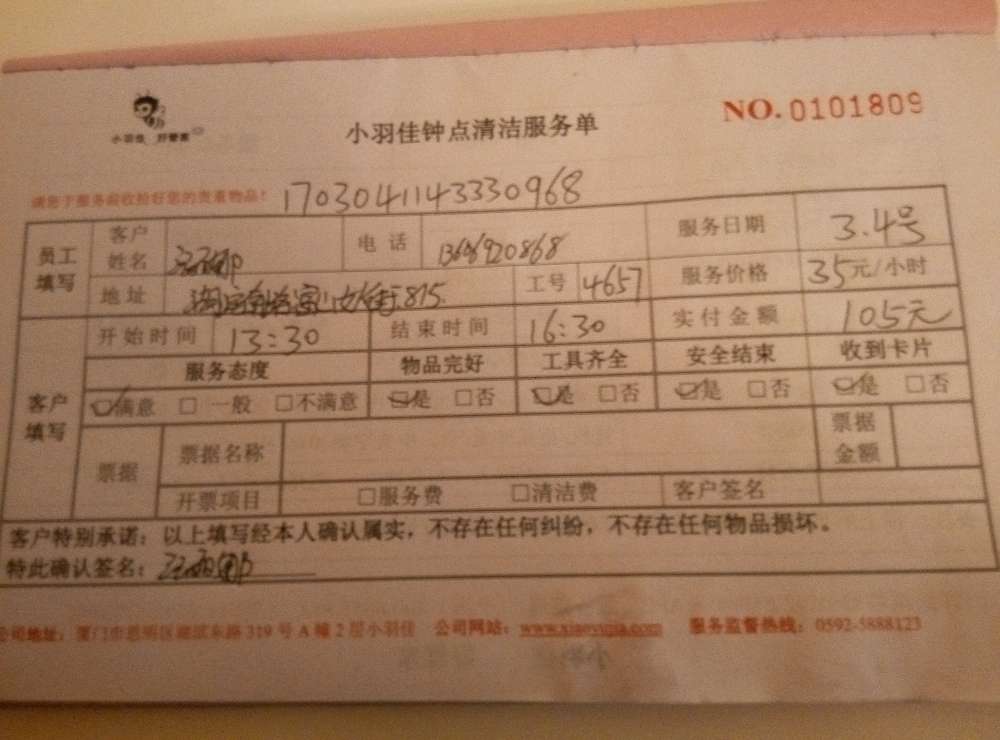 小羽佳 好管家
小羽佳钟点清洁服务单
NO. 0101809
请您于服务前收拾好您的贵重物品!
1703041143330968
员工填写 客户姓名 电话 服务日期 3.4号
地址 815 工号 4657 服务价格 35元/小时
开始时间 13:30 结束时间 16:30 实付金额 105元
客户填写 服务态度 物品完好 工具齐全 安全结束 收到卡片
☑满意 □一般 □不满意 ☑是 □否 ☑是 □否 ☑是 □否 ☑是 □否
票据 票据名称 票据金额
开票项目 □服务费 □清洁费 客户签名
客户特别承诺:以上填写经本人确认属实,不存在任何纠纷,不存在任何物品损坏。
特此确认签名:
公司地址:厦门市思明区湖滨东路319号A幢2层小羽佳 公司网站:www.xiaoyujia.com 服务监督热线:0592-5888123